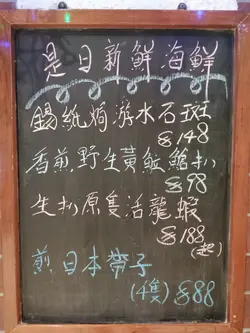 是日新鮮海鮮
錫紙焗游水石斑
$148
香煎野生黃鮻鯧扒
$98
生扒原隻活龍蝦
$188
(起)
煎日本帶子
(4隻) $88